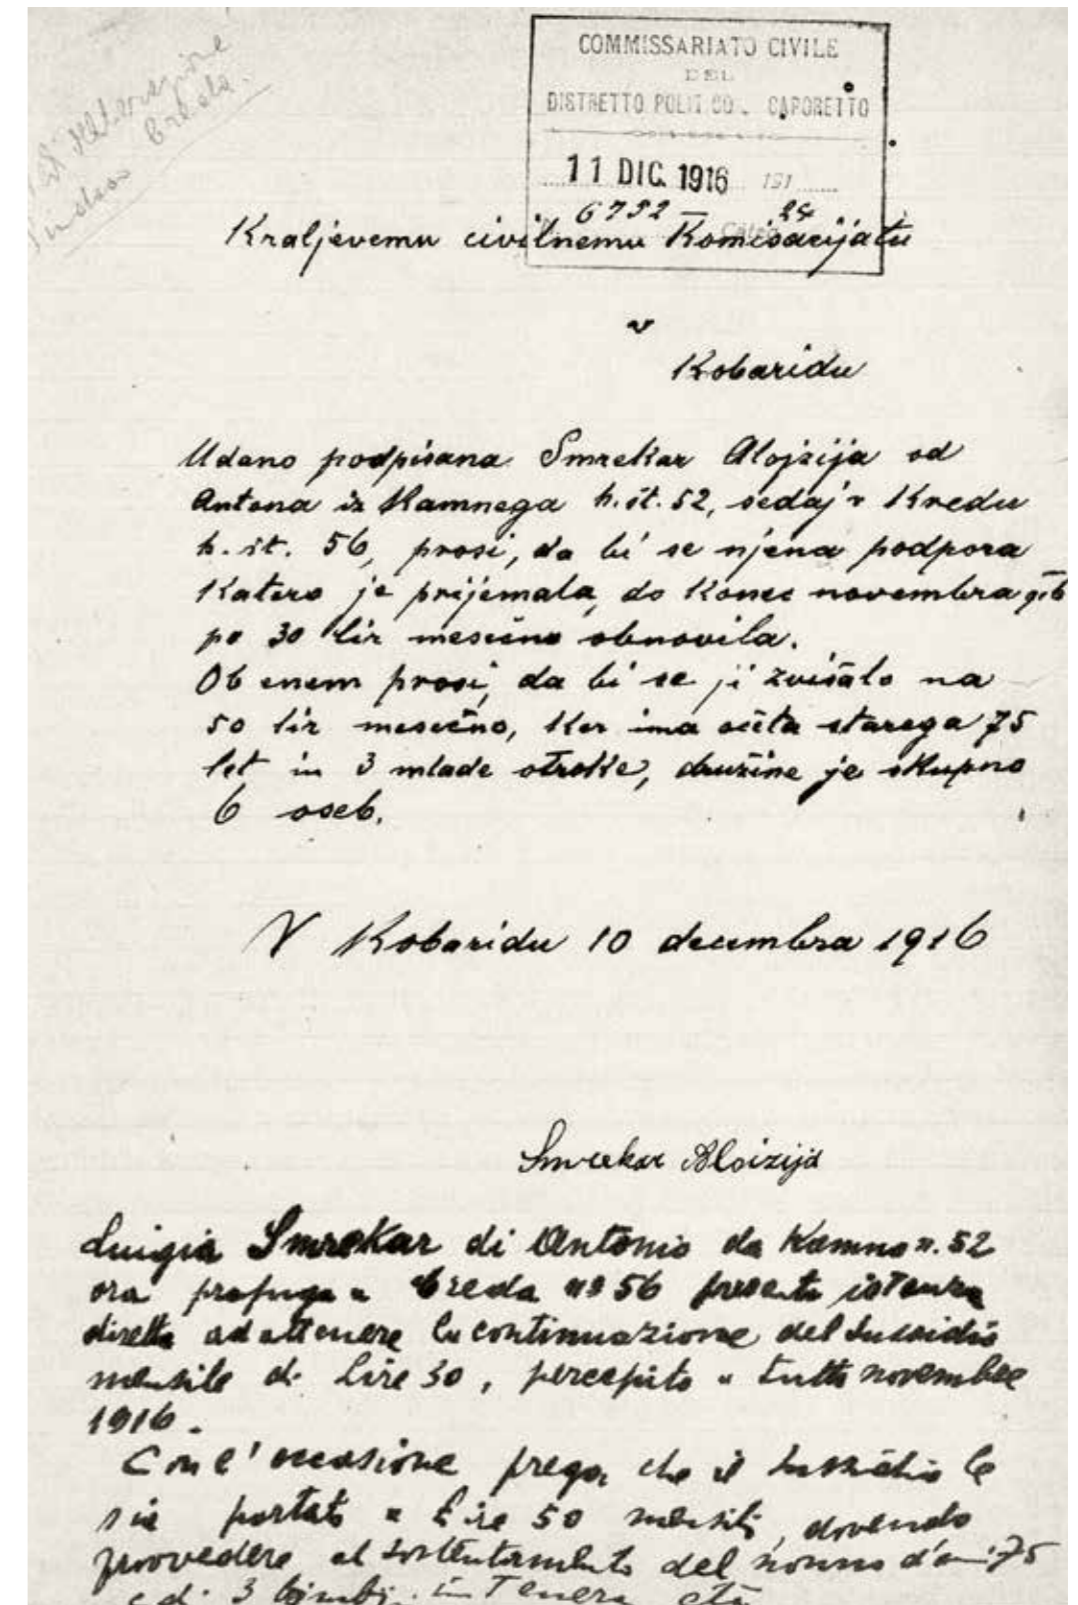 COMMISSARIATO CIVILE
DEL
DISTRETTO POLITICO CAPORETTO
11 DIC. 1916 191
6792 24
Kraljevemu civilnemu Komisarijatu
v
Kobaridu
Udano podpisana Smrekar Alojzija od
Antona iz Kamnega h. št. 52, sedaj v Kredu
h. št. 56, prosi, da bi se njena podpora
katero je prijemala, do konec novembra
po 30 lir mesečno obnovila.
Ob enem prosi, da bi se ji zvišalo na
50 lir mesečno, ker ima očeta starega 75
let in 3 mlade otroke, družine je skupno
6 oseb.
V Kobaridu 10 decembra 1916
Smrekar Aloizija
Luigia Smrekar di Antonio da Kamno n. 52
ora profuga a Creda n° 56 presenta istanza
diretta ad ottenere la continuazione del sussidio
mensile di Lire 30, percepito a tutto novembre
1916.
Con l'occasione prega, che il sussidio le
sia portato a Lire 50 mensili, dovendo
provvedere al sostentamento del nonno d'anni 75
e di 3 bimbi in tenera età